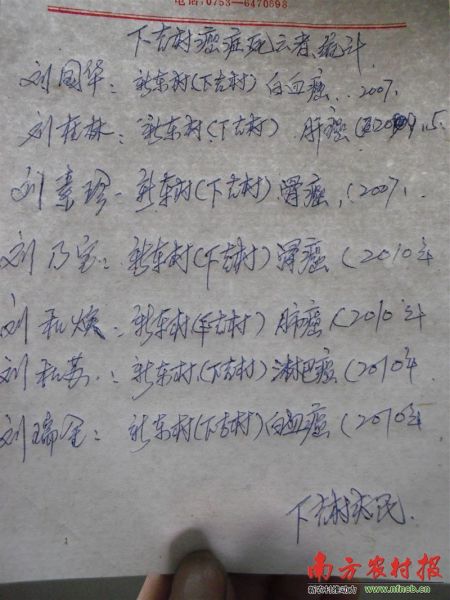 电话:0753-6470898
下古村癌症死亡者统计
刘国华:新东村(下古村)白血癌..2007.
刘桂林:新东村(下古村).肝癌(2009.5.
刘素珍-新东村(下古村)骨癌,(2007.
刘乃宝:新东村(下古村)胃癌(2010年
刘私焕:新东村(下古村)肺癌(2010年
刘私苏:新东村(下古村)淋巴癌(2010年
刘瑞金:新东村(下古村)白血癌(2010年
下古村村民.
南方农村报
新农村推动力 www.nfncb.cn